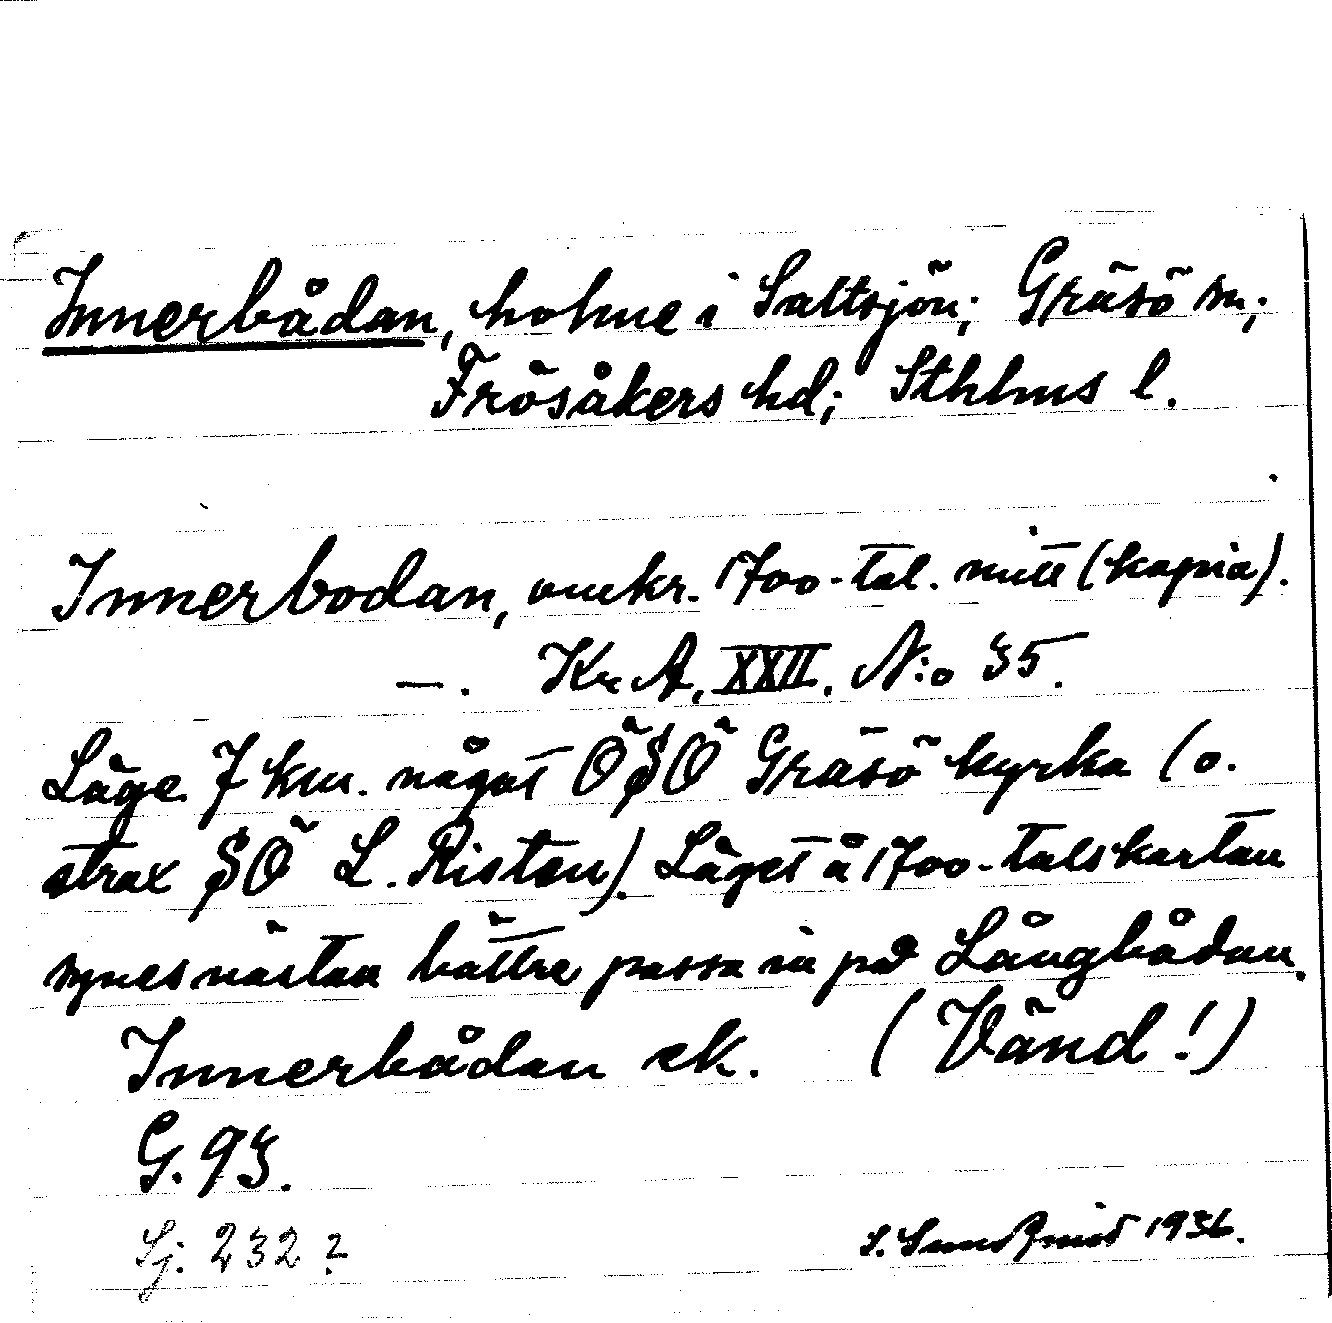 Innerbådan, holme i Saltsjön; Gräsö sn;
Frösåkers hd; Sthlms l.
Innerbodan, omkr. 1700-tal. mitt (kopia).
—. Kr. A. XXII. N:o 35.
Läge 7 km. något ÖSÖ Gräsö kyrka (o.
strax SÖ L. Risten). Läget å 1700-talskartan
synes nästan bättre passa in på Långbådan.
Innerbådan ek. (Vänd!)
G. 93.
Sj: 232?
S. 1936.